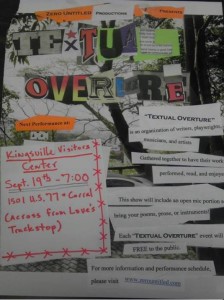 ZERO UNTITLED PRODUCTIONS Presents
TEXTUAL
OVERTURE
Next Performance at:
Kingsville Visitors
Center
Sept. 19th - 7:00
1501 U.S. 77 + Corral
(Across from Love's
Truckstop)
"TEXTUAL OVERTURE"
is an organization of writers, playwrights,
musicians, and artists.
Gathered together to have their work
performed, read, and enjoyed
This show will include an open mic portion so
bring your poems, prose, or instruments!
Each "TEXTUAL OVERTURE" event will
FREE to the public.
For more information and performance schedule,
please visit